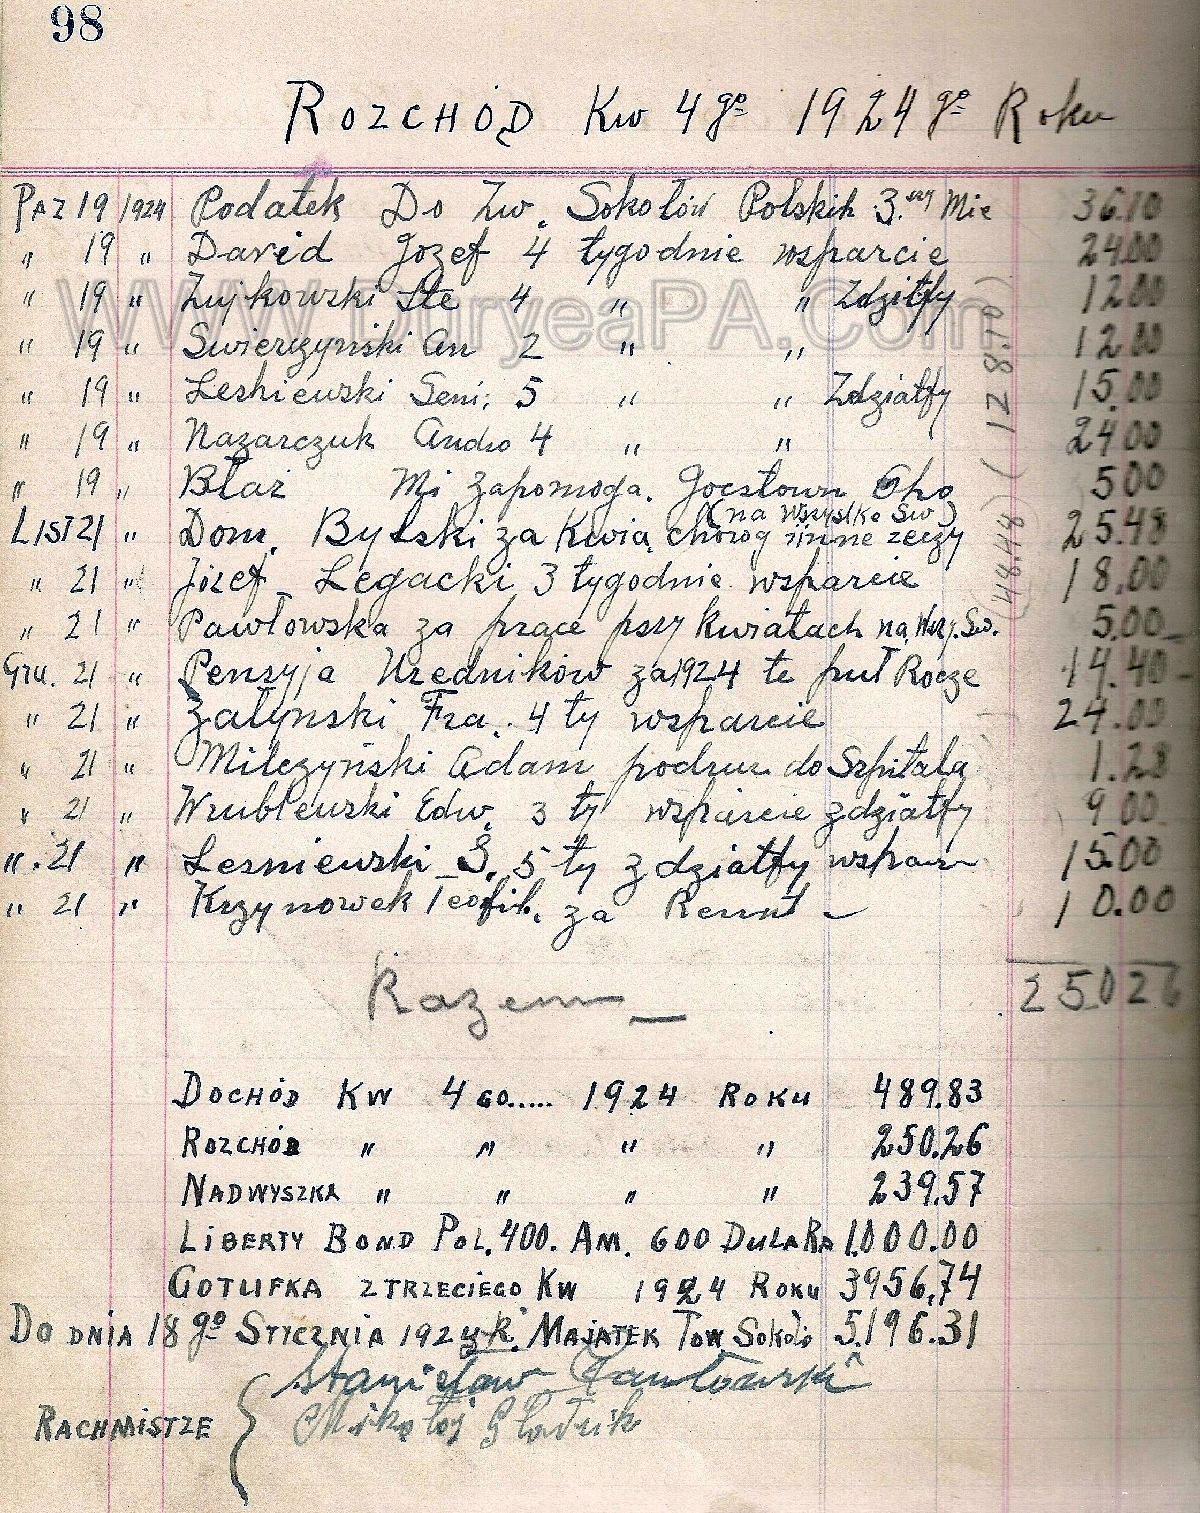 98
ROZCHÓD Kw 4go 1924go Roku
PAZ 19 1924 Podatek Do Zw. Sokołów Polskich 3. Mie 36.10
" 19 " David Jozef 4 tygodnie wsparcie 24.00
" 19 " Zujkowski Ste 4 " " Zdziatfy 12.00
" 19 " Swierczyński An 2 " " 12.00
" 19 " Lesniewski Seni. 5 " " Zdziatfy 15.00
" 19 " Nazarczuk Andro 4 " " 24.00
" 19 " Błaz Mi zapomoga. 5 00
(128.10)
(na Wszystko Sw)
LIST 21 " Dom. Bylski za Kwia, chorog i inne rzeczy 25.48
" 21 " Józef Legacki 3 tygodnie wsparcie 18.00
(48.48)
" 21 " Pawłowska za prace przy kwiatach na, Wszy. Sw. 5.00
Gru. 21 " Pensyja Urzedników za 1924 te puł Rocze 14.40
" 21 " Załynski Fra. 4 ty wsparcie 24.00
" 21 " Milczyński Adam podruz do Szpitala 1.28
" 21 " Wrublewski Edw. 3 ty wsparcie zdziatfy 9 00
" . 21 " Lesniewski S. 5 ty zdziatfy wspar 15.00
" 21 " Krzynowek Teofil. za Rennt 10.00
Razem 250 26
DOCHÓD KW 4 GO..... 1924 ROKU 489.83
ROZCHÓD " " " " 250.26
NADWYSZKA " " " " 239.57
LIBERTY BOND POL. 400. AM. 600 DULARA 1.000.00
GOTUFKA Z TRZECIEGO KW 1924 ROKU 3956,74
DO DNIA 18 go STYCZNIA 192 R. MAJATEK TOW. SOKOŁ 5.196.31
Stanisław Pawłowski
RACHMISTZE { Mikołaj Gładzik
www.DuryeaPA.Com